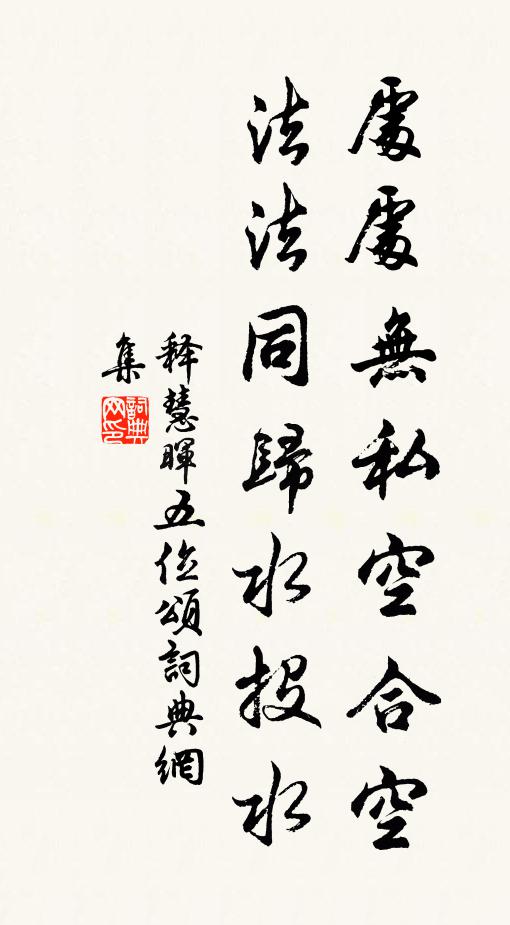 處處無私空合空
法法同歸水投水
释慧暉五位頌詞典網
集
詞典
网印